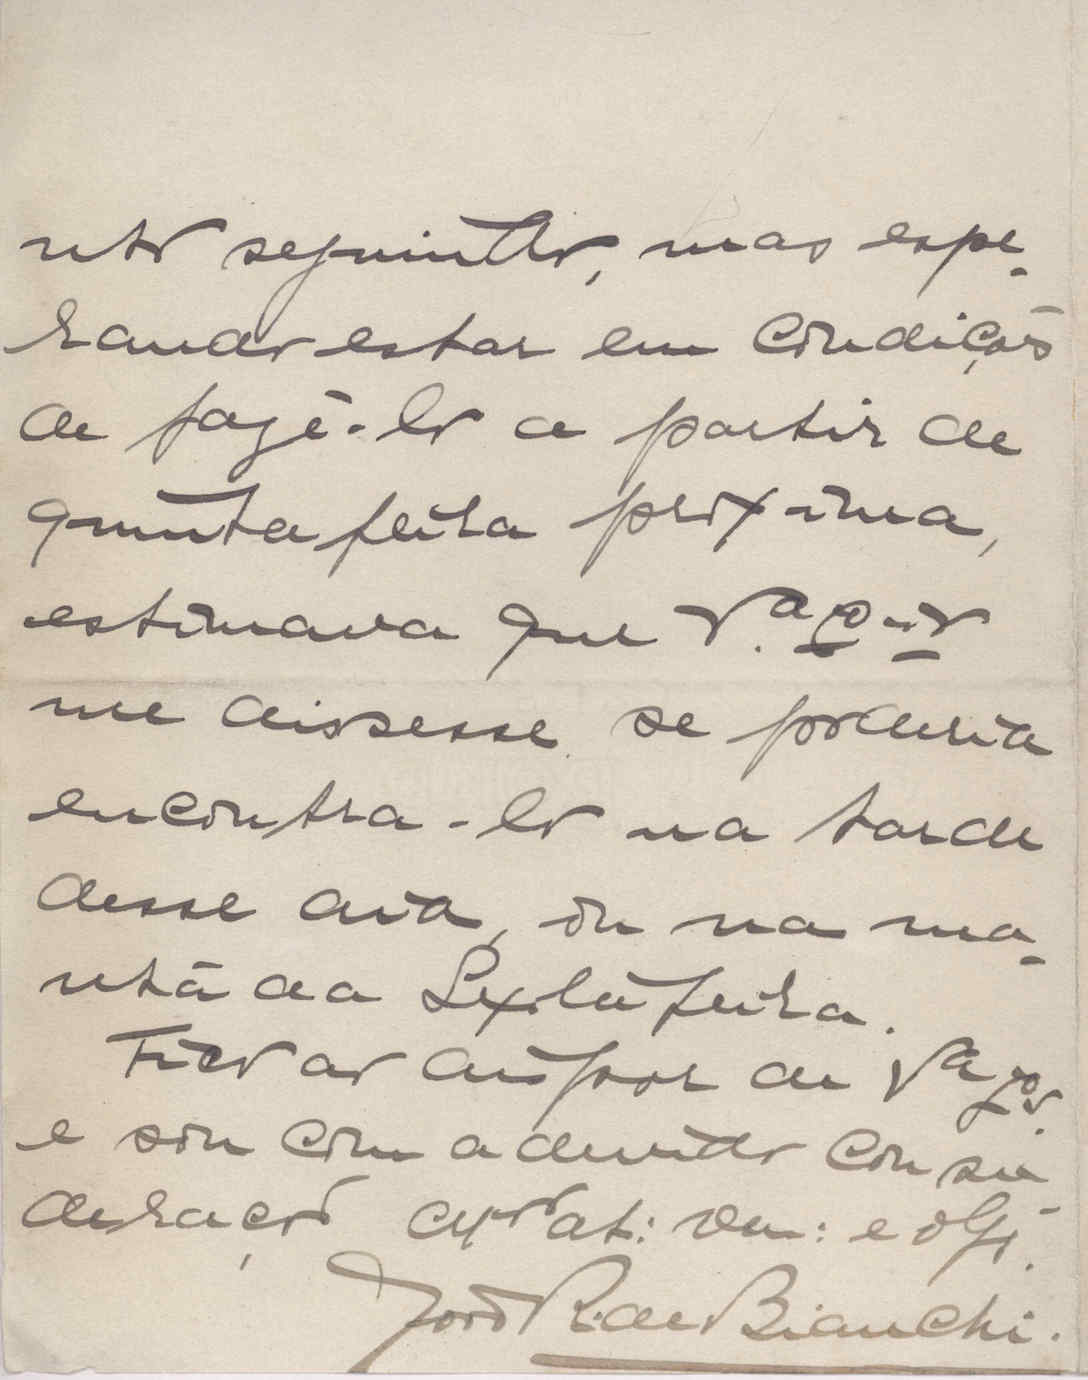 nto seguinte, mas espe-
rando estar em condições
de fazê-lo a partir de
quinta feira proxima,
estimava que V.ª Ex.ª
me dissesse se poderia
encontra-lo na tarde
desse dia, ou na ma-
nhã da Sexta feira.
Fico ao dispor de V.ª Ex.ª
e sou com a devida consi-
deração at: ven: e obg.
João R. de Bianchi.